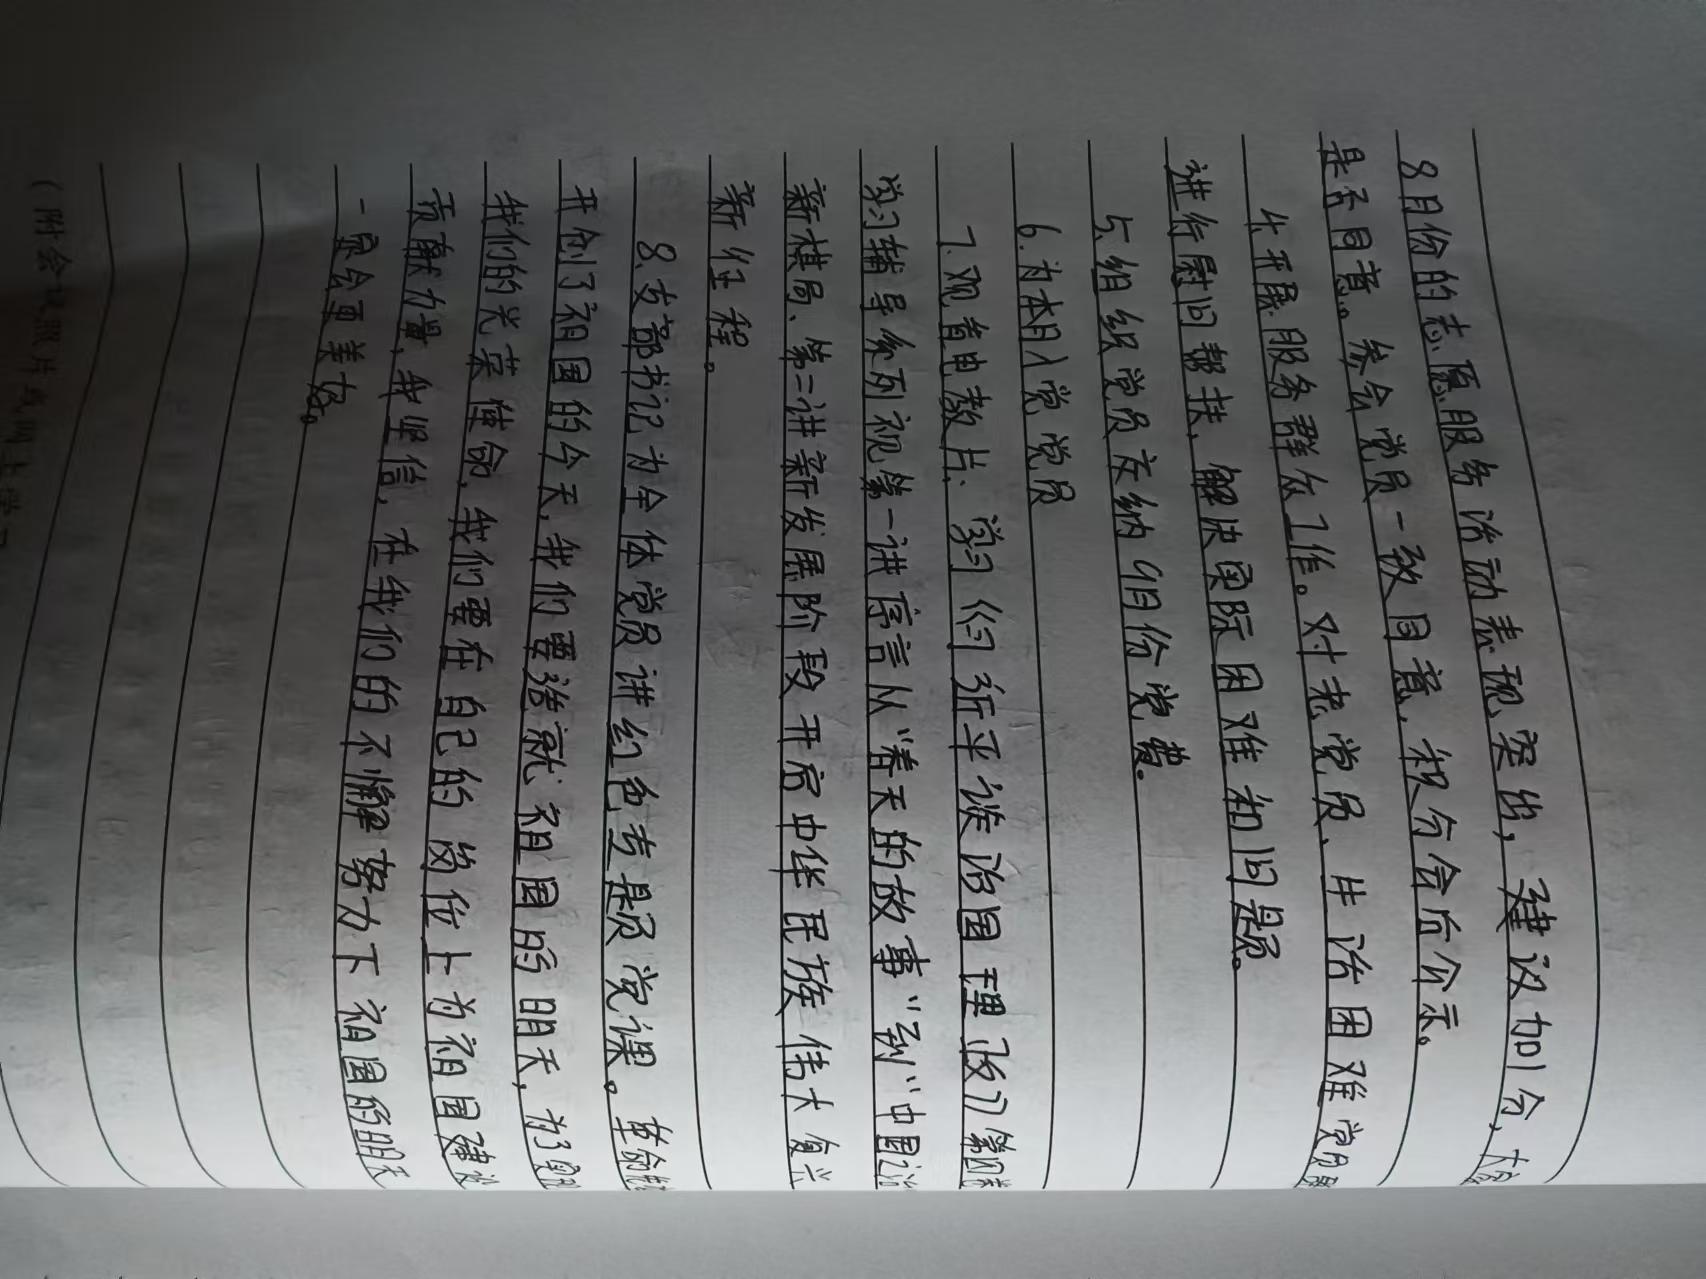 8月份的志愿服务活动表现突出，建议加1分，大家
是否同意。参会党员一致同意，积分会后公示。
4.开展服务群众工作。对老党员、生活困难党员
进行慰问帮扶，解决实际困难和问题。
5.组织党员交纳9月份党费。
6.为本月入党党员
7.观看电教片：学习《习近平谈治国理政》第四卷
学习辅导系列视第一讲序言从“春天的故事”到“中国之治
新棋局、第二讲新发展阶段开启中华民族伟大复兴
新征程。
8.支部书记为全体党员讲红色专题党课。革命先
开创了祖国的今天，我们要造就祖国的明天，为了
我们的光荣使命，我们要在自己的岗位上为祖国建设
贡献力量，我坚信，在我们的不懈努力下祖国的明天
一定会更美好。
（附会议照片